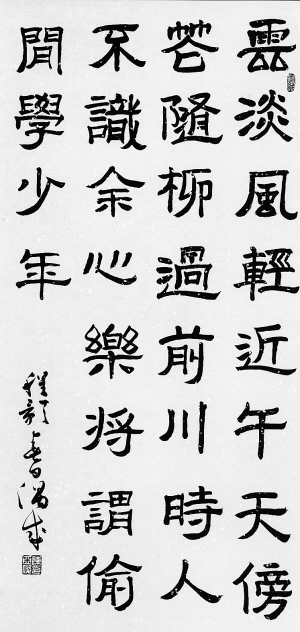 雲淡風輕近午天傍
花隨柳過前川時人
不識余心樂將謂偷
閒學少年
程顥春日偶成